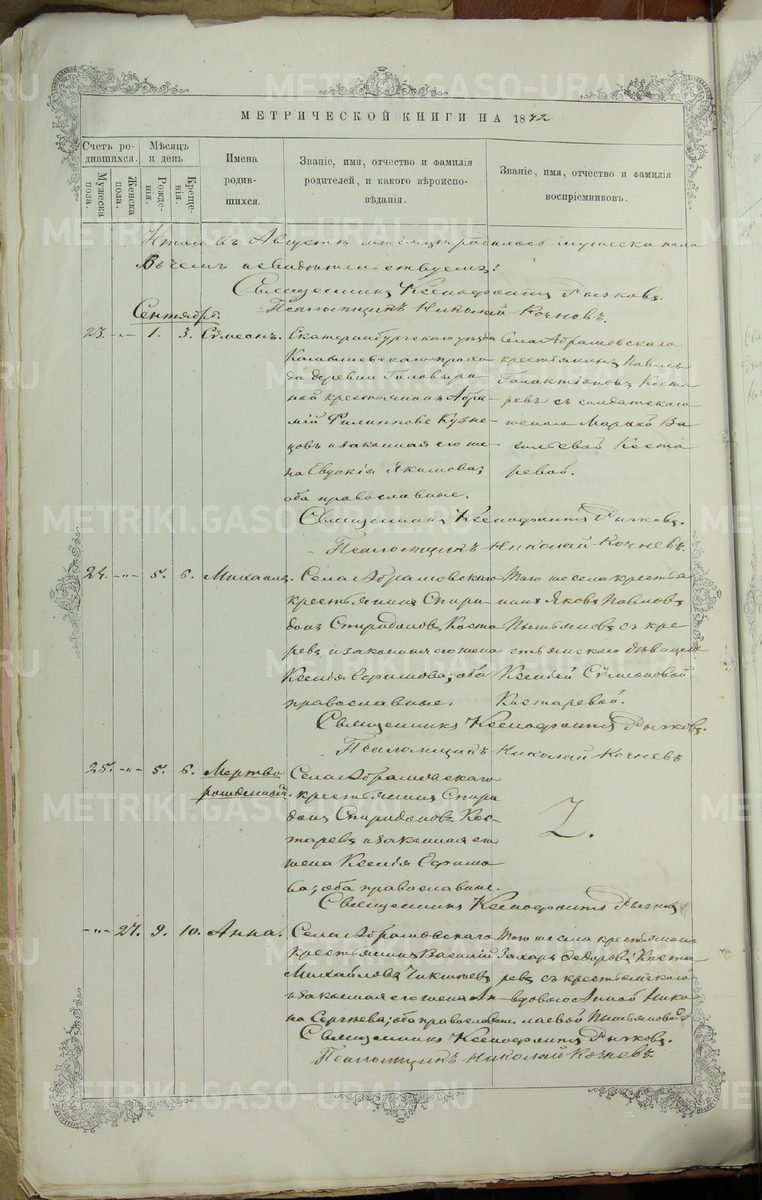 METRIKI.GASO-URAL.RU
МЕТРИЧЕСКОЙ КНИГИ НА 1872
Счетъ ро-
дившихся.
Мужеска
пола.
Женска
пола.
Мѣсяцъ
и день
Рожде-
нія.
Креще-
нія.
Имена
родив-
шихся.
Званіе, имя, отчество и фамилія
родителей, и какого вѣроиспо-
вѣданія.
Званіе, имя, отчество и фамилія
воспріемниковъ.
Итого въ Августѣ мѣсяцѣ родилось мужеска пола
Въ чемъ и свидѣтельствуемъ:
Священникъ Ксенофонтъ Рычковъ.
Псаломщикъ Николай Кочневъ.
Сентябрь.
23. -„- 1. 3. Сѵмеонъ.
Екатеринбургскаго уѣзда
прихо-
да деревни
ной крестьянинъ Абра-
мій Филипповъ Кузне-
цовъ и законная его же-
на Евдокія Якимова;
оба православные.
Села Абрамовскаго
крестьянинъ Павелъ
Галактіоновъ Коста-
ревъ съ солдатскою
женою Марѳой Ва-
сильевой Коста-
ревой.
Священникъ Ксенофонтъ Рычковъ.
Псаломщикъ Николай Кочневъ.
24. -„- 5. 6. Михаилъ.
Села Абрамовскаго
крестьянинъ Спири-
донъ Спиридоновъ Коста-
ревъ и законная его жена
Ксенія Ефимова; оба
православные.
Того же села крестья-
нинъ Яковъ Павловъ
съ кре-
стьянскою дѣвицею
Ксеніей Сѵмеоновой
Костаревой.
Священникъ Ксенофонтъ Рычковъ.
Псаломщикъ Николай Кочневъ.
25. -„- 5. 6. Мертво
рожденный.
Села Абрамовскаго
крестьянинъ Спири-
донъ Спиридоновъ Кос-
таревъ и законная его
жена Ксенія Ефимо-
ва; оба православные.
Священникъ Ксенофонтъ Рычковъ
-„- 27. 9. 10. Анна.
Села Абрамовскаго
крестьянинъ Василій
Михайловъ
и законная его жена Ан-
на Сергѣева; оба православные.
Того же села крестьянинъ
Захаръ Ѳедоровъ Коста-
ревъ съ крестьянскою
вдовою Анной Нико-
лаевой
Священникъ Ксенофонтъ Рычковъ.
Псаломщикъ Николай Кочневъ.